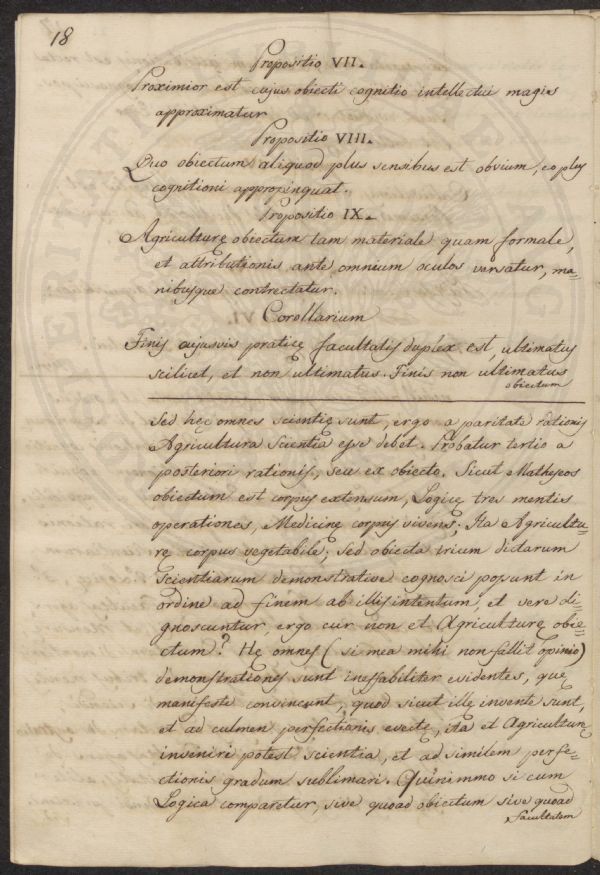 18
Propositio VII.
Proximior est cujus obiecti cognitio intellectui magis
approximatur
Propositio VIII.
Quo obiectum aliquod plus sensibus est obvium, eo plus
cognitioni appropinquat.
Propositio IX.
Agriculturę obiectum tam materiale quam formale,
et attributionis ante omnium oculos versatur, ma=
nibusque contrectatur.
Corollarium
Finis cujusvis praticę facultatis duplex est, ultimatus
scilicet, et non ultimatus. Finis non ultimatus
obiectum
Sed hęc omnes scientię sunt, ergo a paritate rationis
Agricultura Scientia esse debet. Probatur tertio a
posteriori rationis, seu ex obiecto. Sicut Matheseos
obiectum est corpus extensum, Logicę tres mentis
operationes, Medicinę corpus vivens; Ita Agricultu=
rę corpus vegetabile; sed obiecta trium dictarum
Scientiarum demonstrative cognosci possunt in
ordine ad finem ab illis intentum, et vere di=
gnoscuntur, ergo cur non et Agriculturę obie=
ctum? Hę omnes (si mea mihi non fallit opinio)
demonstrationes sunt ineffabiliter evidentes, quę
manifeste convincunt, quod sicut illę invente sunt,
et ad culmen perfectionis evectę, ita et Agriculturę
inveniri potest scientia, et ad similem perfe=
ctionis gradum sublimari. Quinimmo si cum
Logica comparetur, sive quoad obiectum sive quoad
facultatem